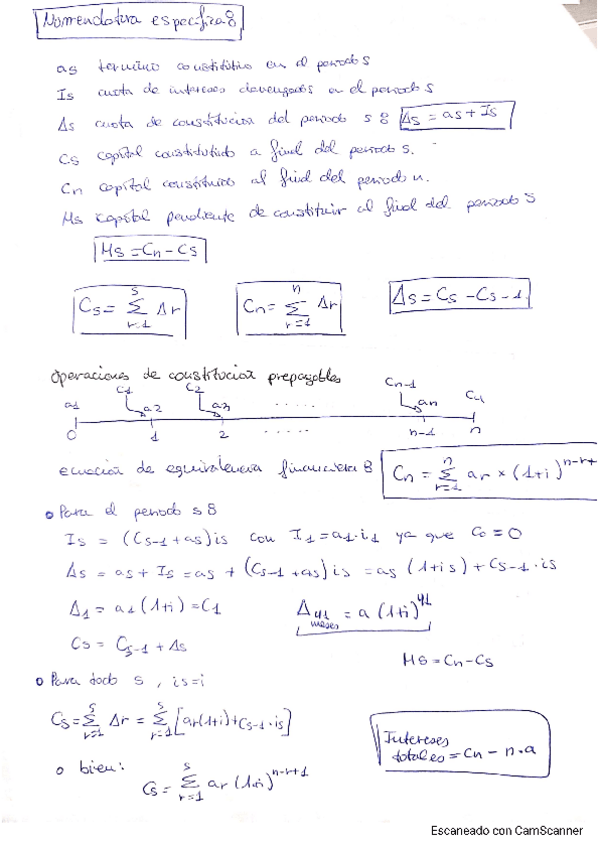 Nomenclatura específica:
as término constitutivo en el periodo s
Is cuota de intereses devengados en el periodo s
Δs cuota de constitución del periodo s : Δs = as + Is
Cs capital constituido a final del periodo s.
Cn capital constituido al final del periodo n.
Ms capital pendiente de constituir al final del periodo s
Ms = Cn - Cs
Cs = s Σ r=1 Δr Cn = n Σ r=1 Δr Δs = Cs - Cs-1.
Operaciones de constitución prepagables
a1 C1 a2 C2 a3 ..... Cn-1 an Cn
0 1 2 ..... n-1 n
ecuación de equivalencia financiera : Cn = n Σ r=1 ar × (1+i)^n-r+
• Para el periodo s :
Is = (Cs-1 + as) is con I1 = a1·i1 ya que C0 = 0
Δs = as + Is = as + (Cs-1 + as) is = as (1+is) + Cs-1 · is
Δ1 = a1 (1+i) = C1 Δ41 meses = a (1+i)^41
Cs = Cs-1 + Δs
Ms = Cn - Cs
• Para todo s , is = i
Cs = s Σ r=1 Δr = s Σ r=1 [ar(1+i) + Cs-1 · is]
Intereses
totales = Cn - n·a
o bien:
Cs = s Σ r=1 ar (1+i)^n-r+1
Escaneado con CamScanner